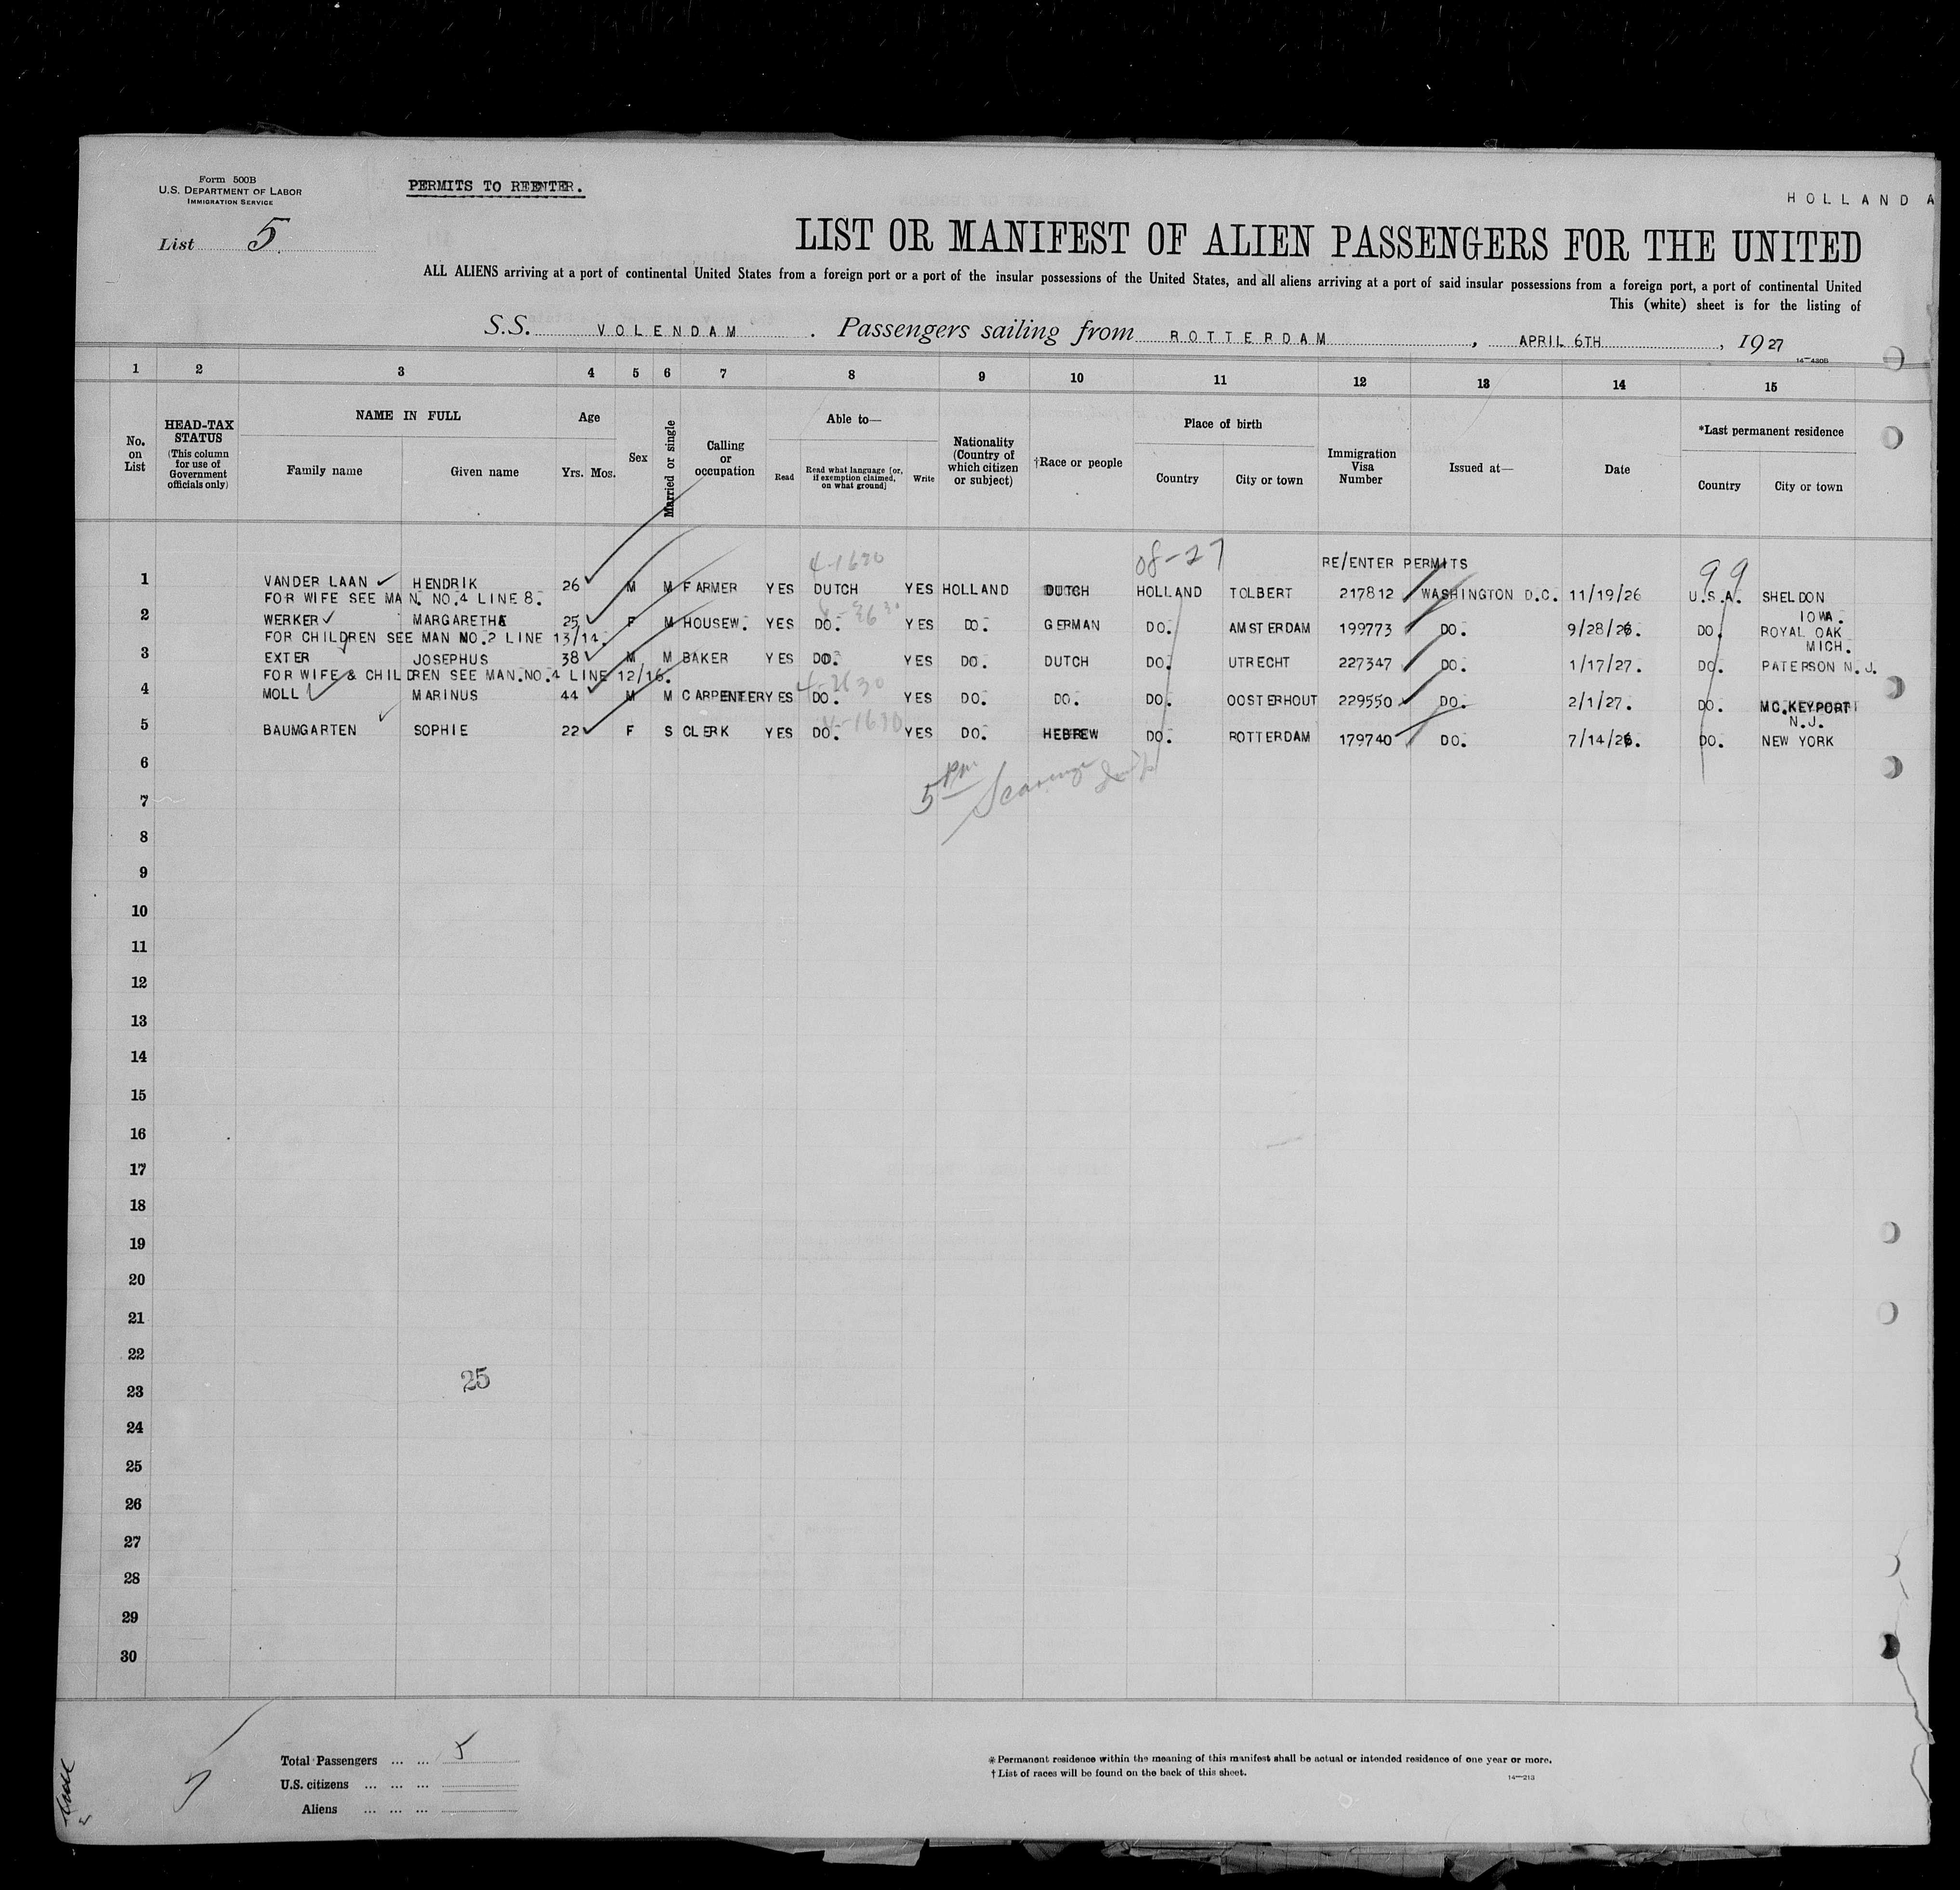 Form 500B
U.S. DEPARTMENT OF LABOR
IMMIGRATION SERVICE
PERMITS TO REENTER.
HOLLAND A
List 5
LIST OR MANIFEST OF ALIEN PASSENGERS FOR THE UNITED
ALL ALIENS arriving at a port of continental United States from a foreign port or a port of the insular possessions of the United States, and all aliens arriving at a port of said insular possessions from a foreign port, a port of continental United
This (white) sheet is for the listing of
S.S. VOLENDAM. Passengers sailing from ROTTERDAM, APRIL 6TH, 1927
14-430B
1 2 3 4 5 6 7 8 9 10 11 12 13 14 15
No. on List
HEAD-TAX STATUS (This column for use of Government officials only)
NAME IN FULL
Family name Given name
Age
Yrs. Mos.
Sex
Married or single
Calling or occupation
Able to—
Read Read what language [or, if exemption claimed, on what ground] Write
Nationality (Country of which citizen or subject)
†Race or people
Place of birth
Country City or town
Immigration Visa Number
Issued at—
Date
*Last permanent residence
Country City or town
4-1630 08-27 RE/ENTER PERMITS 99
1 VANDER LAAN HENDRIK 26 M M FARMER YES DUTCH YES HOLLAND DUTCH HOLLAND TOLBERT 217812 WASHINGTON D.C. 11/19/26 U.S.A. SHELDON IOWA.
FOR WIFE SEE MAN. NO.4 LINE 8.
2 WERKER MARGARETHE 25 F M HOUSEW. YES DO. YES DO. GERMAN DO. AMSTERDAM 199773 DO. 9/28/26. DO. ROYAL OAK MICH.
FOR CHILDREN SEE MAN NO.2 LINE 13/14.
3 EXTER JOSEPHUS 38 M M BAKER YES DO. YES DO. DUTCH DO. UTRECHT 227347 DO. 1/17/27. DO. PATERSON N.J.
FOR WIFE & CHILDREN SEE MAN.NO.4 LINE 12/16.
4 MOLL MARINUS 44 M M CARPENTER YES DO. YES DO. DO. DO. OOSTERHOUT 229550 DO. 2/1/27. DO. MC.KEYPORT N.J.
5 BAUMGARTEN SOPHIE 22 F S CLERK YES DO. YES DO. HEBREW DO. ROTTERDAM 179740 DO. 7/14/26. DO. NEW YORK
6
5 PM
7
8
9
10
11
12
13
14
15
16
17
18
19
20
21
22
25
23
24
25
26
27
28
29
30
Total Passengers ... ... 5
U.S. citizens ... ... ...
Aliens ... ... ...
* Permanent residence within the meaning of this manifest shall be actual or intended residence of one year or more.
† List of races will be found on the back of this sheet.
14-213